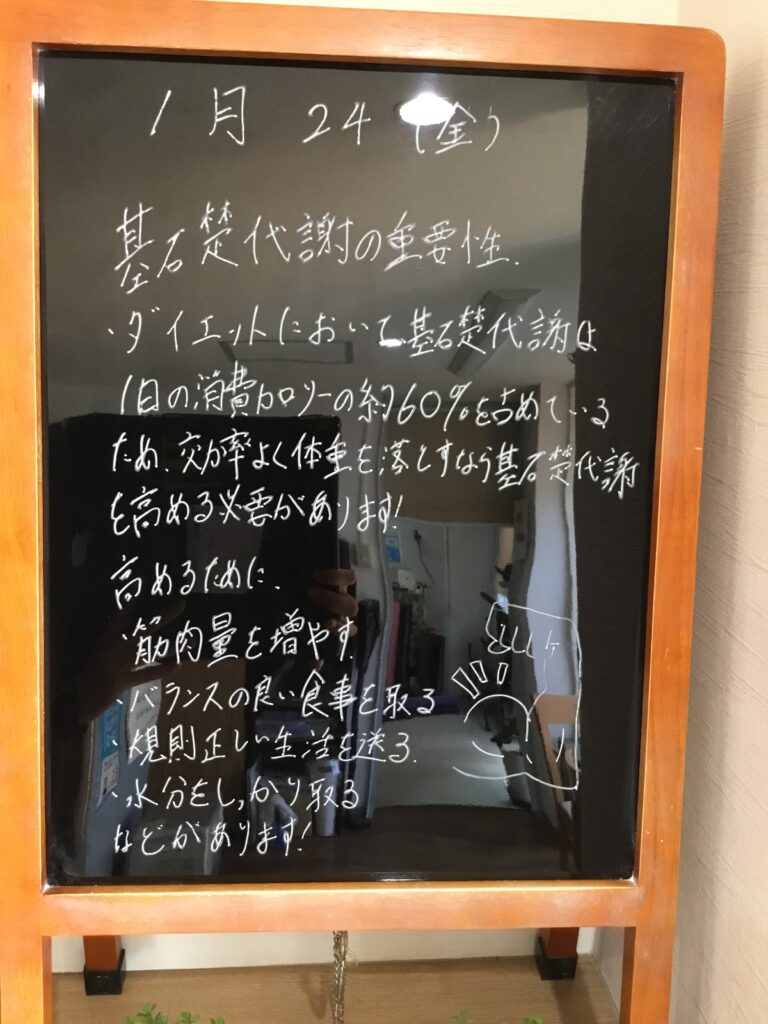 1月 24 (金)
基礎代謝の重要性.
・ダイエットにおいて、基礎代謝は
1日の消費カロリーの約60%を占めている
ため、効率よく体重を落とすなら基礎代謝
を高める必要があります!
高めるために、
・筋肉量を増やす.
・バランスの良い食事を取る
・規則正しい生活を送る.
・水分をしっかり取る
などがあります!